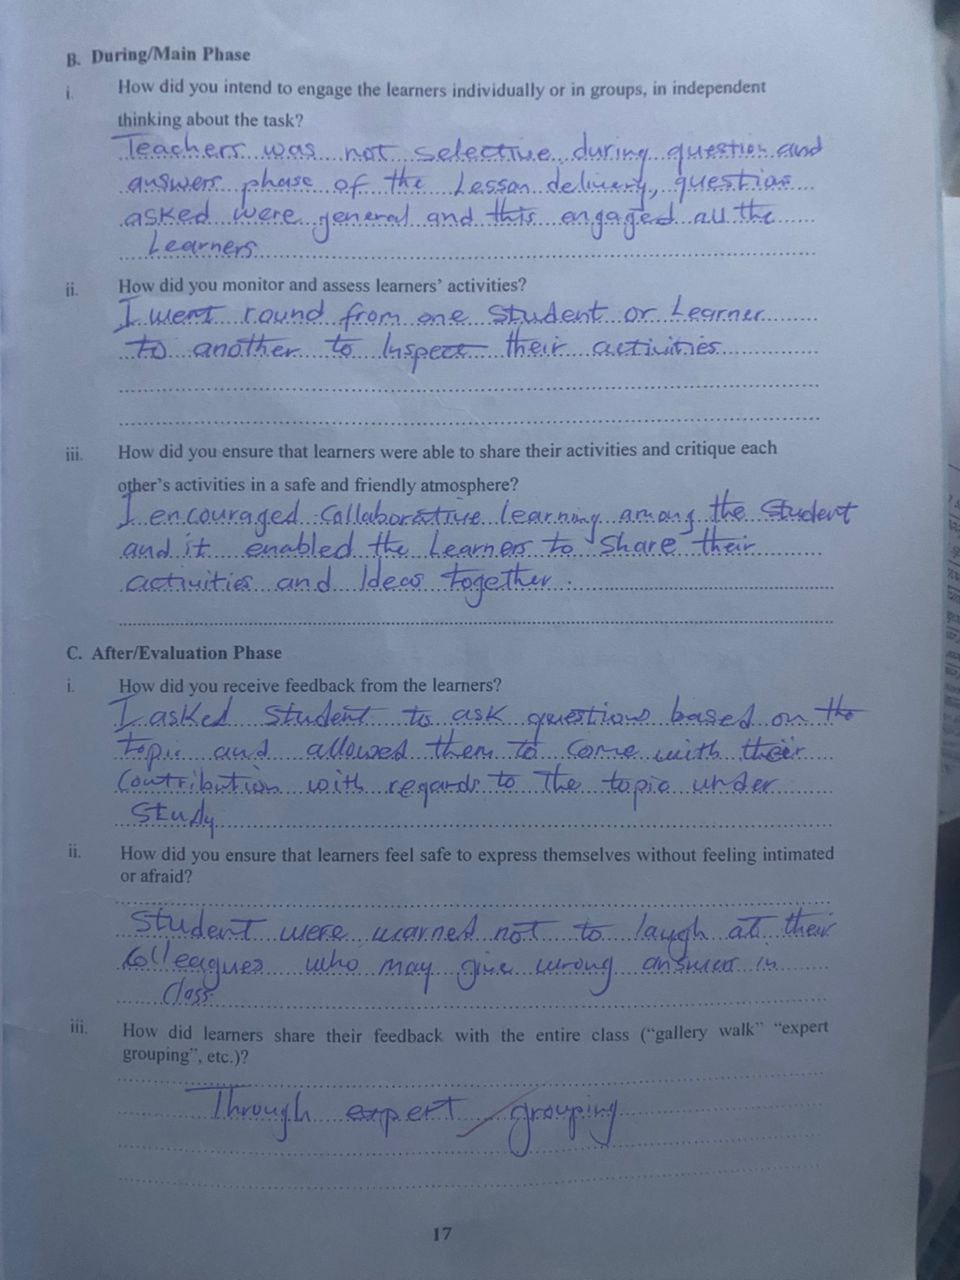 B. During/Main Phase
i. How did you intend to engage the learners individually or in groups, in independent
thinking about the task?
Teachers was not selective during question and
answers phase of the Lesson delivery, question
asked were general and this engaged all the
Learners
ii. How did you monitor and assess learners' activities?
I went round from one Student or Learner
to another to Inspect their activities
iii. How did you ensure that learners were able to share their activities and critique each
other's activities in a safe and friendly atmosphere?
I encouraged Collaborative learning among the Student
and it enabled the Learners to Share their
activities and Ideas together.
C. After/Evaluation Phase
i. How did you receive feedback from the learners?
I asked Student to ask questions based on the
topic and allowed them to Come with their
Contribution with regards to The topic under
Study
ii. How did you ensure that learners feel safe to express themselves without feeling intimated
or afraid?
Student were warned not to laugh at their
Colleagues who may give wrong answers in
Class.
iii. How did learners share their feedback with the entire class ("gallery walk" "expert
grouping", etc.)?
Through expert grouping
17